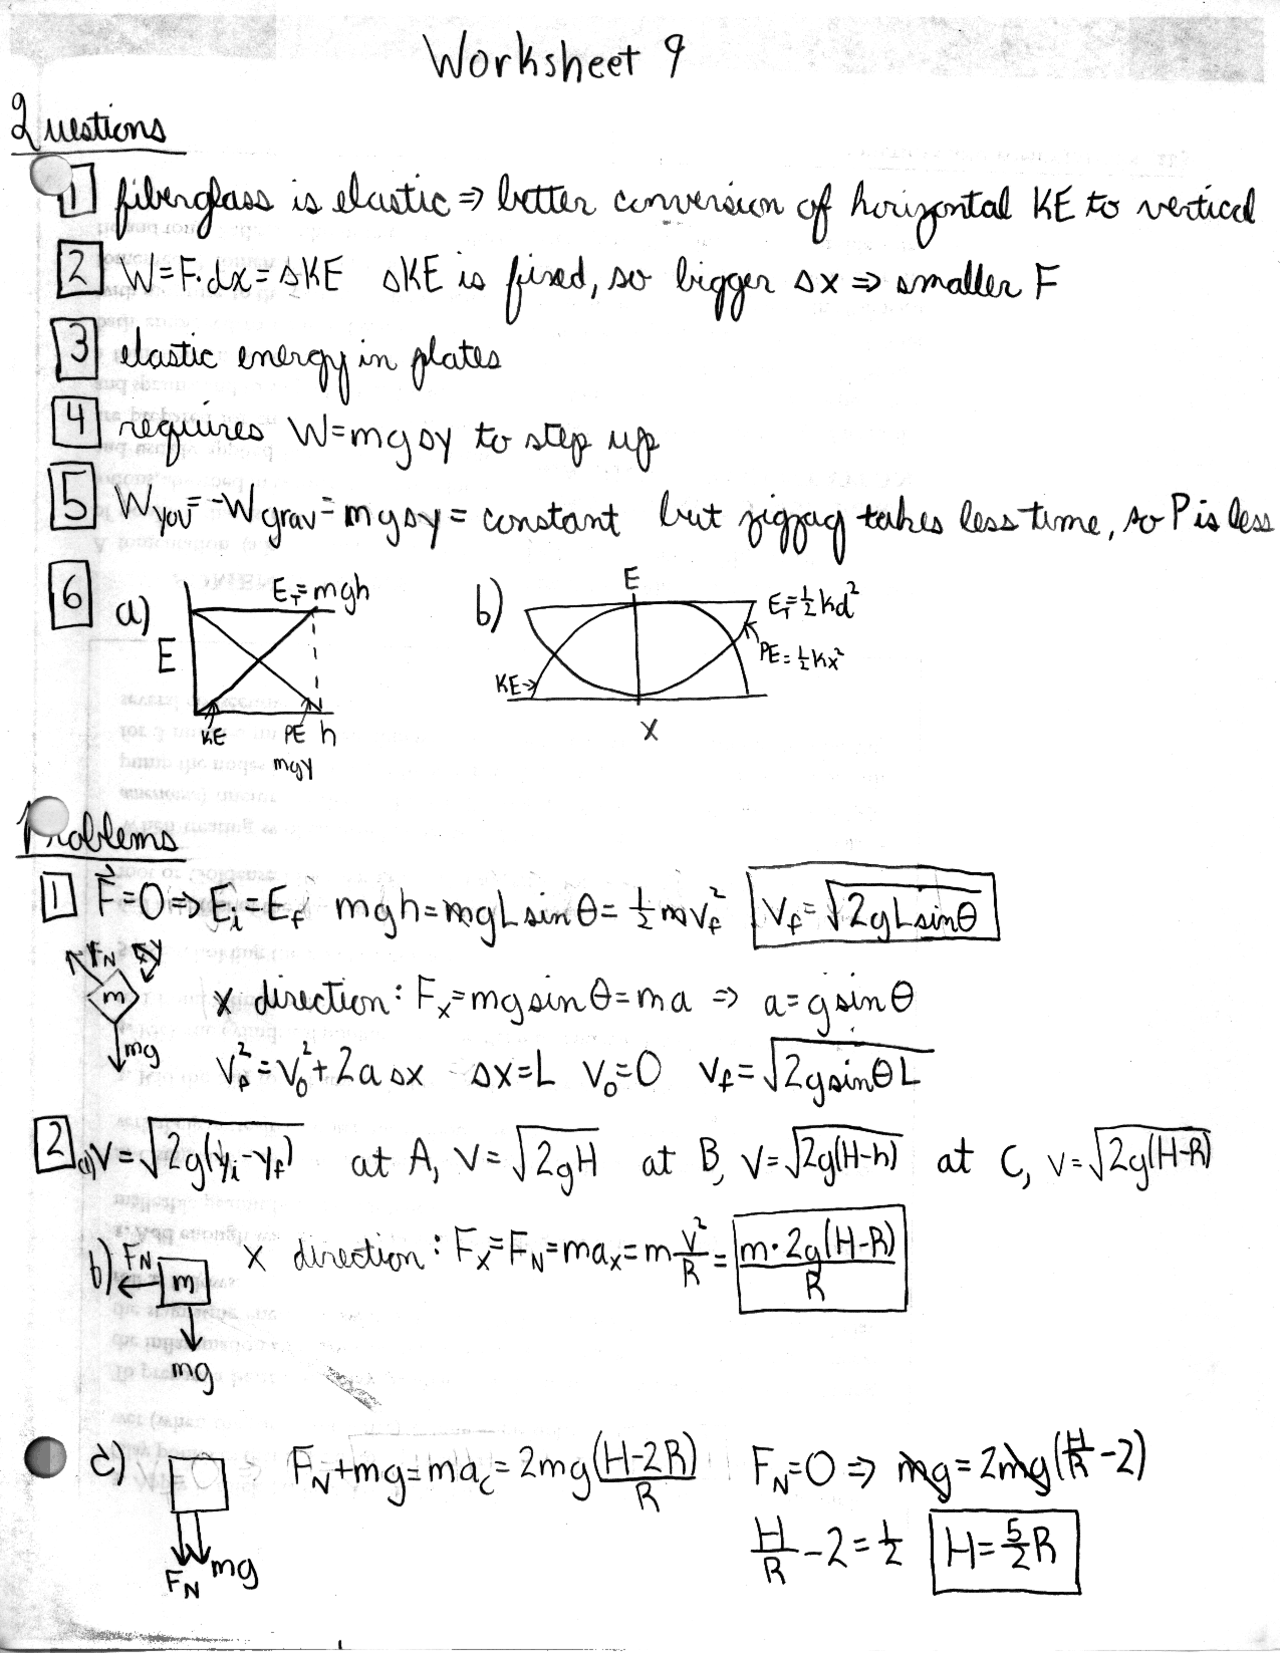 Worksheet 9
Questions
1 fiberglass is elastic ⇒ better conversion of horizontal KE to vertical
2 W=F·dx=ΔKE ΔKE is fixed, so bigger Δx ⇒ smaller F
3 elastic energy in plates
4 requires W=mgΔy to step up
5 Wyou=-Wgrav=mgΔy=constant but zigzag takes less time, so P is less
6 a) E_T=mgh
E
KE PE h
mgy
b) E
E_T=½kd²
PE=½kx²
KE→
x
Problems
1 F⃗=0⇒E_i=E_f mgh=mgLsinθ=½mv_f² v_f=√2gLsinθ
F_N x y
m
mg
x direction: F_x=mgsinθ=ma ⇒ a=gsinθ
v_f²=v_0²+2aΔx Δx=L v_0=0 v_f=√2gsinθL
2 a) v=√2g(y_i-y_f) at A, v=√2gH at B, v=√2g(H-h) at C, v=√2g(H-R)
b) F_N m x direction: F_x=F_N=ma_x=m v²/R = m·2g(H-R)/R
mg
c) F_N+mg=ma_c=2mg(H-2R)/R F_N=0 ⇒ mg=2mg(H/R-2)
F_N mg
H/R-2=½ H=5/2R